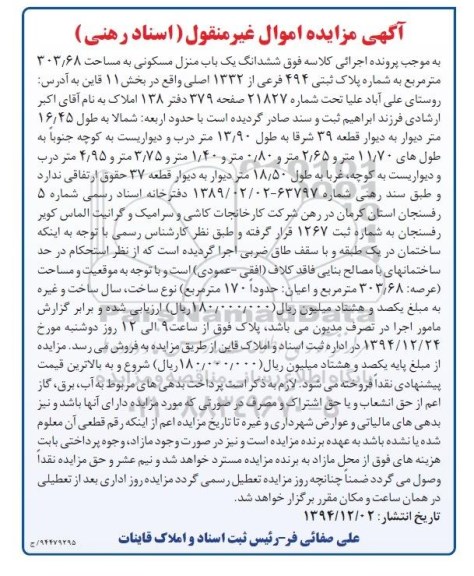 آگهی مزایده اموال غیرمنقول (اسناد رهنی)
به موجب پرونده اجرائی کلاسه فوق ششدانگ یک باب منزل مسکونی به مساحت ۳۰۳٫۶۸
مترمربع به شماره پلاک ثبتی ۴۹۴ فرعی از ۱۳۳۲ اصلی واقع در بخش ۱۱ قاین به آدرس:
روستای علی آباد علیا تحت شماره ۲۱۸۲۷ صفحه ۳۷۹ دفتر ۱۳۸ املاک به نام آقای اکبر
ارشادی فرزند ابراهیم ثبت و سند صادر گردیده است با حدود اربعه: شمالا به طول ۱۶٫۴۵
متر دیوار به دیوار قطعه ۳۹ شرقا به طول ۱۳٫۹۰ متر درب و دیواریست به کوچه جنوباً به
طول های ۱۱٫۷۰ متر و ۲٫۶۵ متر و ۰٫۸۰ متر و ۱٫۴۰ متر و ۳٫۷۵ متر و ۴٫۹۵ متر درب
و دیواریست به کوچه، غربا به طول ۱۸٫۵۰ متر دیوار به دیوار قطعه ۳۷ حقوق ارتفاقی ندارد
و طبق سند رهنی شماره ۶۳۷۹۷-۱۳۸۹/۰۲/۰۲ دفترخانه اسناد رسمی شماره ۵
رفسنجان استان کرمان در رهن شرکت کارخانجات کاشی و سرامیک و گرانیت الماس کویر
رفسنجان به شماره ثبت ۱۲۶۷ قرار گرفته و طبق نظر کارشناس رسمی با توجه به اینکه
ساختمان در یک طبقه و با سقف طاق ضربی اجرا گردیده است که از نظر استحکام در حد
ساختمانهای با مصالح بنایی فاقد کلاف (افقی -عمودی) است و با توجه به موقعیت و مساحت
(عرصه: ۳۰۳٫۶۸ مترمربع و اعیان: حدوداً ۱۷۰ مترمربع) نوع ساخت، سال ساخت و غیره
به مبلغ یکصد و هشتاد میلیون ریال (۱۸۰٫۰۰۰٫۰۰۰ریال) ارزیابی شده و برابر گزارش
مامور اجرا در تصرف مدیون می باشد، پلاک فوق از ساعت ۹ الی ۱۲ روز دوشنبه مورخ
۱۳۹۴/۱۲/۲۴ در اداره ثبت اسناد و املاک قاین از طریق مزایده به فروش می رسد. مزایده
از مبلغ پایه یکصد و هشتاد میلیون ریال (۱۸۰٫۰۰۰٫۰۰۰ریال) شروع و به بالاترین قیمت
پیشنهادی نقداً فروخته می شود. لازم به ذکر است پرداخت بدهی های مربوط به آب، برق، گاز
اعم از حق انشعاب و یا حق اشتراک و مصرف در صورتی که مورد مزایده دارای آنها باشد و نیز
بدهی های مالیاتی و عوارض شهرداری و غیره تا تاریخ مزایده اعم از اینکه رقم قطعی آن معلوم
شده یا نشده باشد به عهده برنده مزایده است و نیز در صورت وجود مازاد، وجوه پرداختی بابت
هزینه های فوق از محل مازاد به برنده مزایده مسترد خواهد شد و نیم عشر و حق مزایده نقداً
وصول می گردد ضمناً چنانچه روز مزایده تعطیل رسمی گردد مزایده روز اداری بعد از تعطیلی
در همان ساعت و مکان مقرر برگزار خواهد شد.
تاریخ انتشار: ۱۳۹۴/۱۲/۰۲
علی صفائی فر-رئیس ثبت اسناد و املاک قاینات
۹۴۴۷۹۲۹۵/ح